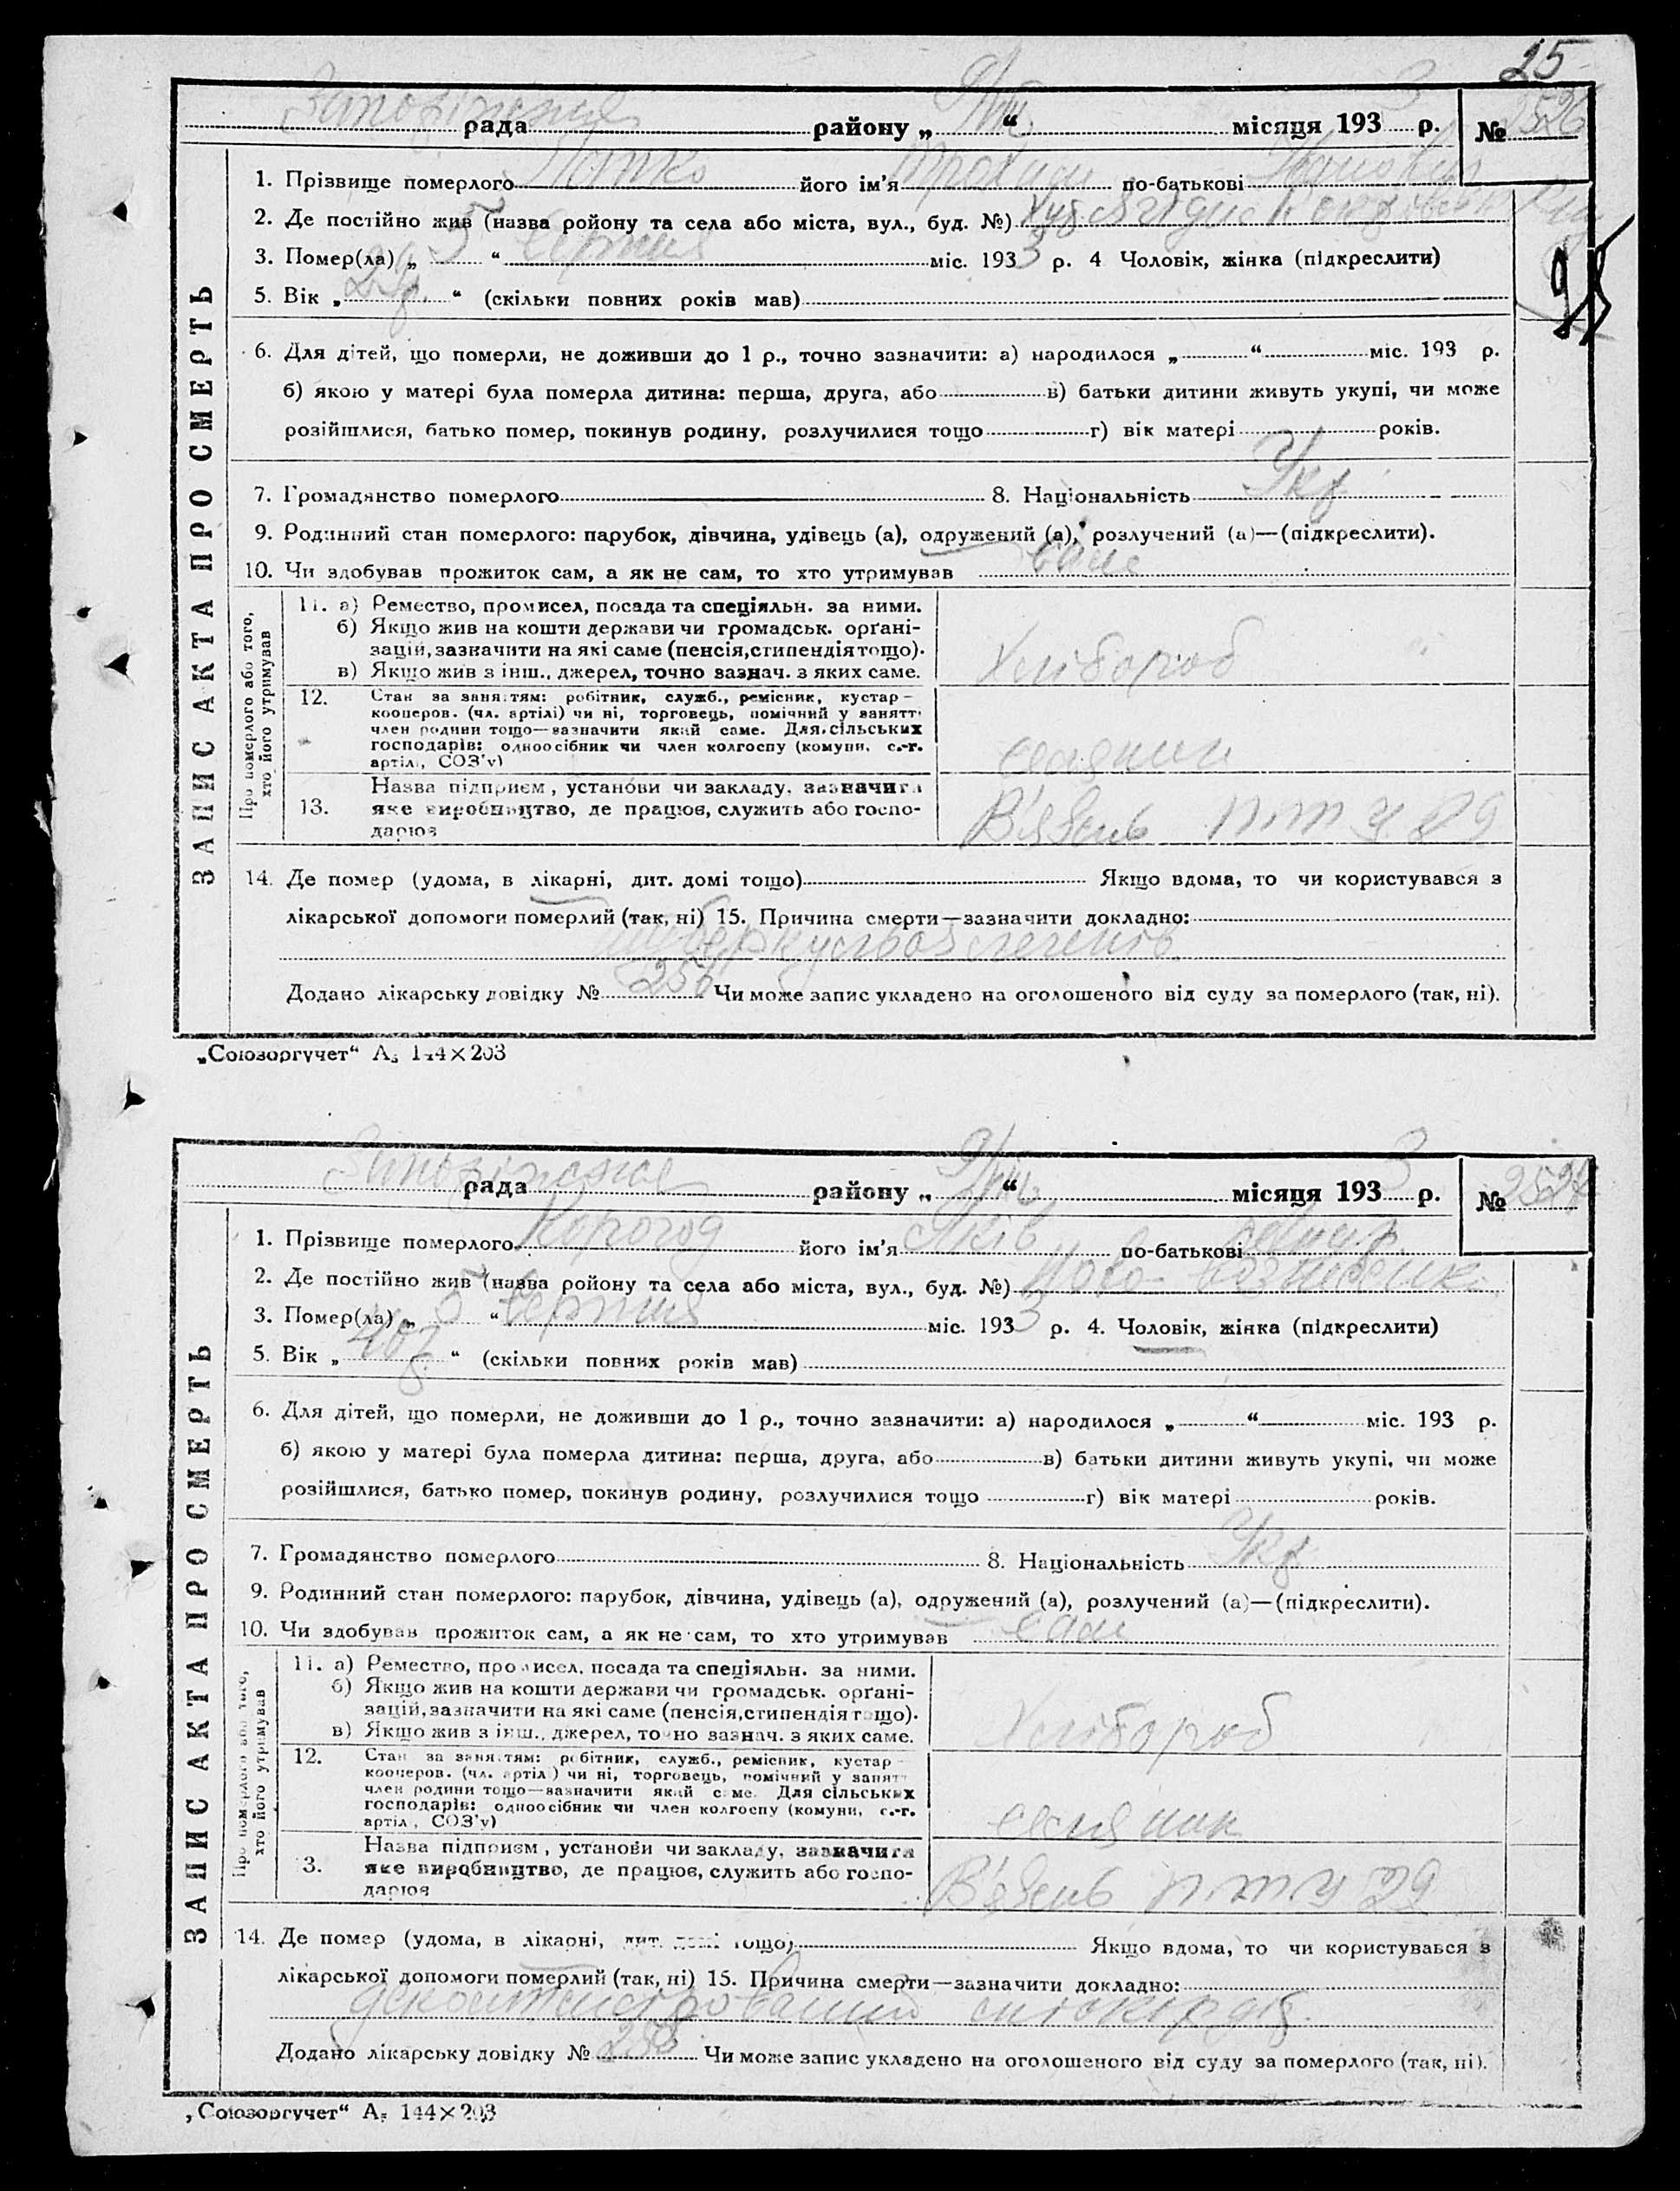 25
Запорізька рада району „ 9/VIII “ місяця 193 3 р. № 2526
ЗАПИС АКТА ПРО СМЕРТЬ
1. Прізвище померлого його ім'я по-батькові
2. Де постійно жив (назва ройону та села або міста, вул., буд. №)
3. Помер(ла) „ 5 “ серпня міс. 193 3 р. 4 Чоловік, жінка (підкреслити)
5. Вік „ “ (скільки повних років мав)
6. Для дітей, що померли, не доживши до 1 р., точно зазначити: а) народилося „ “ міс. 193 р.
б) якою у матері була померла дитина: перша, друга, або в) батьки дитини живуть укупі, чи може
розійшлися, батько помер, покинув родину, розлучилися тощо г) вік матері років.
7. Громадянство померлого 8. Національність Укр
9. Родинний стан померлого: парубок, дівчина, удівець (а), одружений (а), розлучений (а)—(підкреслити).
10. Чи здобував прожиток сам, а як не сам, то хто утримував сам
Про померлого або того, хто його утримував
11. а) Ремество, промисел, посада та спеціяльн. за ними.
б) Якщо жив на кошти держави чи громадськ. орґані-
зацій, зазначити на які саме (пенсія, стипендія тощо).
в) Якщо жив з інш., джерел, точно зазнач. з яких саме.
Хлібороб
12. Стан за заняттям: робітник, служб., ремісник, кустар—
кооперов. (чл. артілі) чи ні, торговець, помічний у занятт
член родини тощо—зазначити який саме. Для сільських
господарів: одноосібник чи член колгоспу (комуни, с.-г.
артілі, СОЗ'у)
селянин
13. Назва підприєм, установи чи закладу, зазначити
яке виробництво, де працює, служить або госпо-
дарює
В'язень
14. Де помер (удома, в лікарні, дит. домі тощо) Якщо вдома, то чи користувався з
лікарської допомоги померлий (так, ні) 15. Причина смерти—зазначити докладно:
туберкульоз легенів
Додано лікарську довідку № 256 Чи може запис укладено на оголошеного від суду за померлого (так, ні).
„Союзоргучет“ А5 144×203
Запорізька рада району „ 9/VIII “ місяця 193 3 р. № 2527
ЗАПИС АКТА ПРО СМЕРТЬ
1. Прізвище померлого Корогод його ім'я Яків по-батькові
2. Де постійно жив (назва ройону та села або міста, вул., буд. №) Ново-
3. Помер(ла) „ 5 “ серпня міс. 193 3 р. 4. Чоловік, жінка (підкреслити)
5. Вік „ “ (скільки повних років мав)
6. Для дітей, що померли, не доживши до 1 р., точно зазначити: а) народилося „ “ міс. 193 р.
б) якою у матері була померла дитина: перша, друга, або в) батьки дитини живуть укупі, чи може
розійшлися, батько помер, покинув родину, розлучилися тощо г) вік матері років.
7. Громадянство померлого 8. Національність Укр
9. Родинний стан померлого: парубок, дівчина, удівець (а), одружений (а), розлучений (а)—(підкреслити).
10. Чи здобував прожиток сам, а як не сам, то хто утримував сам
Про померлого або того, хто його утримував
11. а) Ремество, промисел, посада та спеціяльн. за ними.
б) Якщо жив на кошти держави чи громадськ. орґані-
зацій, зазначити на які саме (пенсія, стипендія тощо).
в) Якщо жив з інш., джерел, точно зазнач. з яких саме.
Хлібороб
12. Стан за заняттям: робітник, служб., ремісник, кустар—
кооперов. (чл. артілі) чи ні, торговець, помічний у занятт
член родини тощо—зазначити який саме. Для сільських
господарів: одноосібник чи член колгоспу (комуни, с.-г.
артілі, СОЗ'у)
селянин
13. Назва підприєм, установи чи закладу, зазначити
яке виробництво, де працює, служить або госпо-
дарює
В'язень
14. Де помер (удома, в лікарні, дит. домі тощо) Якщо вдома, то чи користувався з
лікарської допомоги померлий (так, ні) 15. Причина смерти—зазначити докладно:
Додано лікарську довідку № 258 Чи може запис укладено на оголошеного від суду за померлого (так, ні).
„Союзоргучет“ А5 144×203